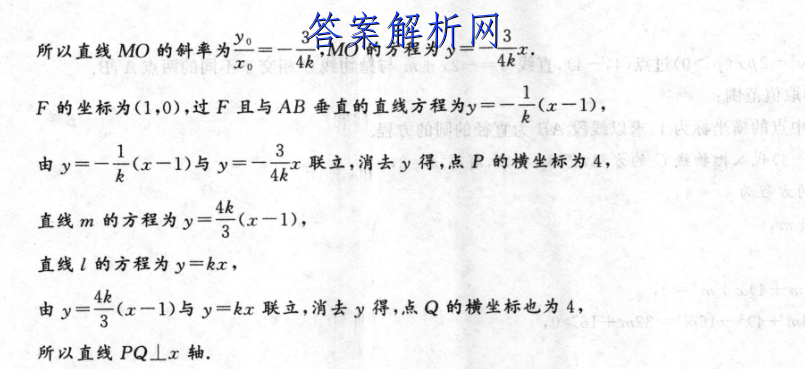 答案解析网
所以直线 MO 的斜率为 y₀/x₀=-3/4k,MO 的方程为 y=-3/4k x.
F 的坐标为(1,0),过 F 且与 AB 垂直的直线方程为y=-1/k(x-1),
由 y=-1/k(x-1)与 y=-3/4k x 联立,消去 y 得,点 P 的横坐标为 4,
直线 m 的方程为 y=4k/3(x-1),
直线 l 的方程为 y=kx,
由 y=4k/3(x-1)与 y=kx 联立,消去 y 得,点 Q 的横坐标也为 4,
所以直线 PQ⊥x 轴.